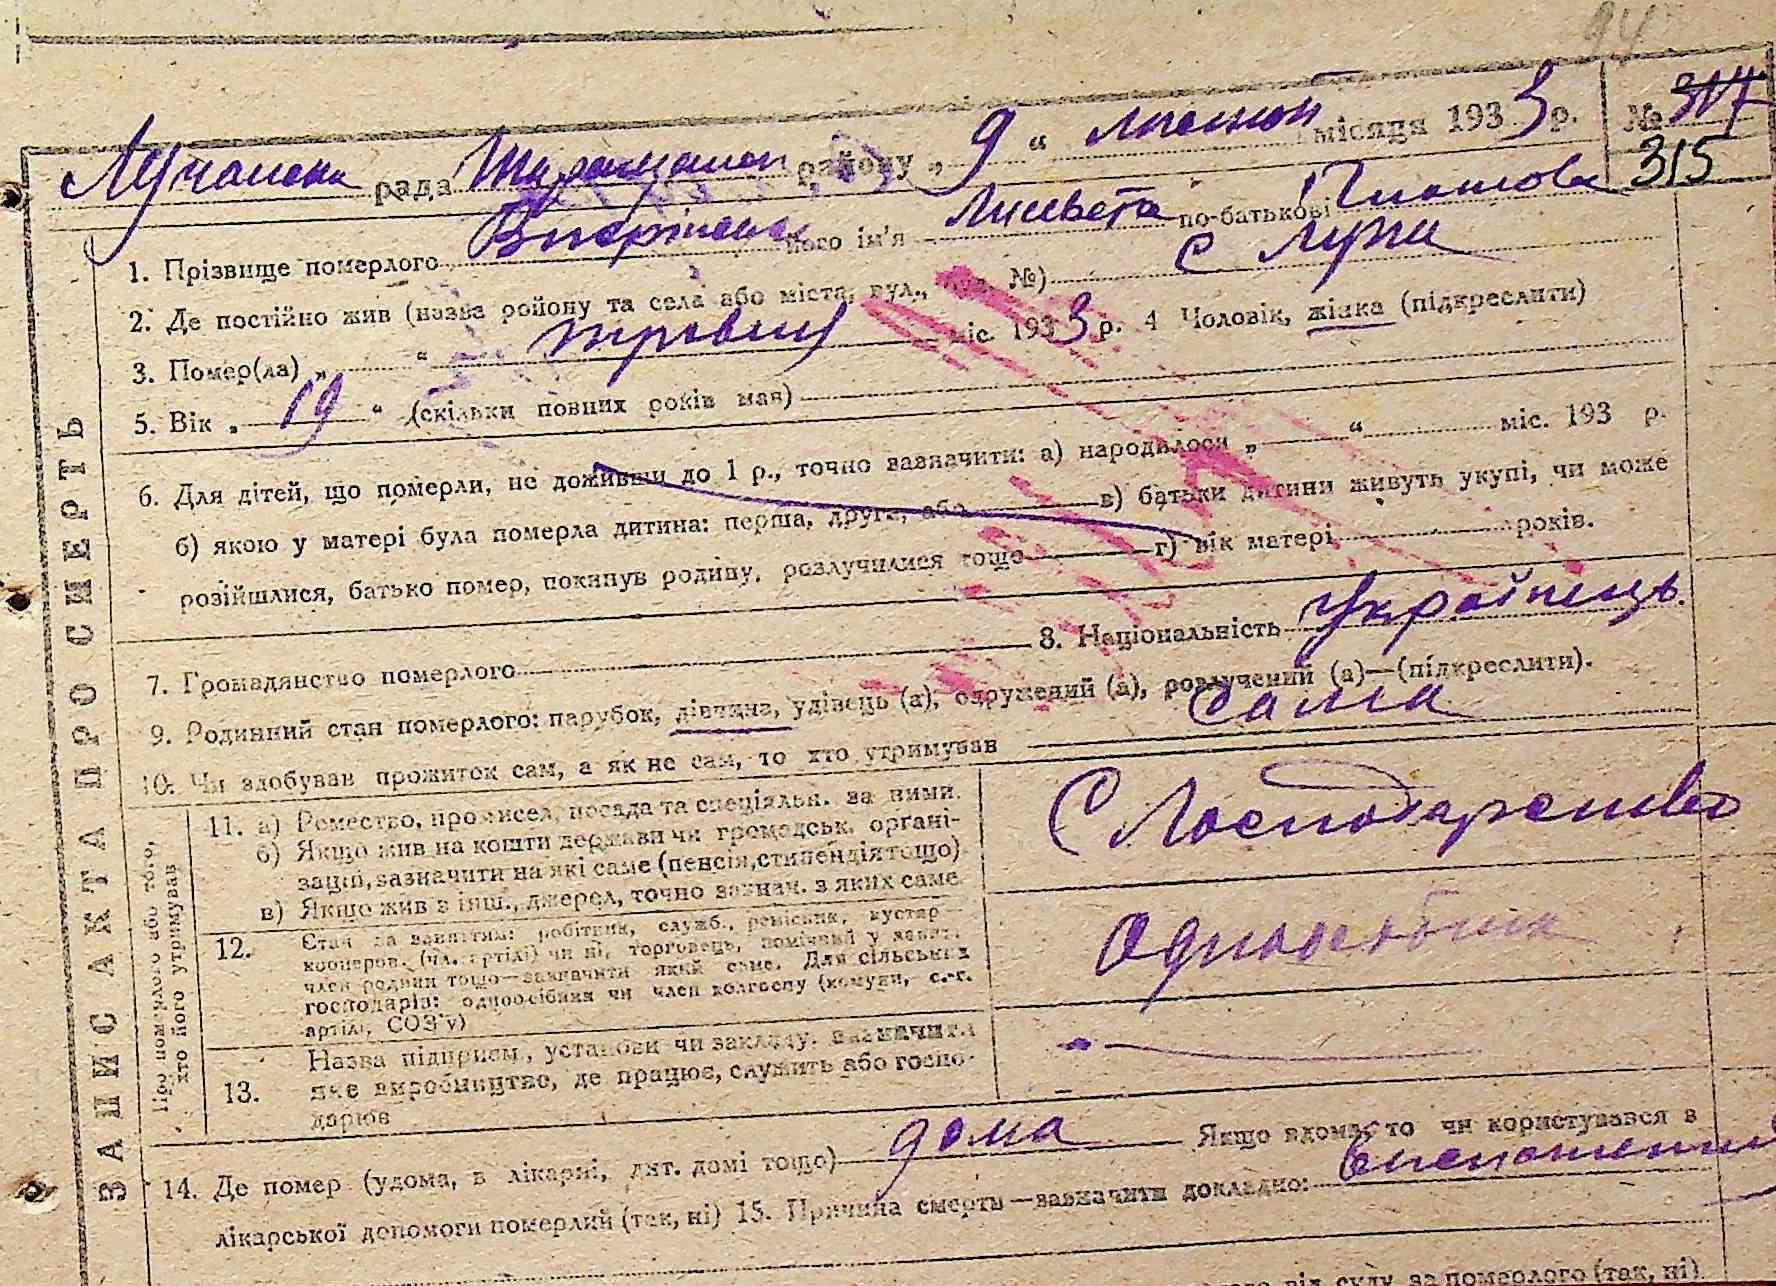 94
Лучанська рада Таращанськ району „ 9 “ липня місяця 1933 р. № 317
315
1. Прізвище померлого його ім'я Лисевета по-батькові
2. Де постійно жив (назва району та села або міста, вул., буд. №) с Лука
3. Помер(ла) „ “ травня міс. 1933 р. 4 Чоловік, жінка (підкреслити)
5. Вік „ 19 “ (скільки повних років мав)
6. Для дітей, що померли, не доживши до 1 р., точно зазначити: а) народилося „ “ міс. 193 р.
б) якою у матері була померла дитина: перша, друга, або в) батьки дитини живуть укупі, чи може
розійшлися, батько помер, покинув родину, розлучилися тощо г) вік матері років.
7. Громадянство померлого 8. Національність Українець.
9. Родинний стан померлого: парубок, дівчина, удівець (а), одружений (а), розлучений (а)—(підкреслити).
10. Чи здобував прожиток сам, а як не сам, то хто утримував сама
ЗАПИС АКТА ПРО СМЕРТЬ
Про померлого або того,
хто його утримував
11. а) Ремество, промисел, посада та спеціяльн. за ними.
б) Якщо жив на кошти держави чи громадськ. органі-
зацій, зазначити на які саме (пенсія, стипендія тощо)
в) Якщо жив з інш., джерел, точно зазнач. з яких саме.
С Господарство
12. Стан за заняттям: робітник, служб., ремісник, кустар
кооперов. (чл. артілі) чи ні, торговець,
член родини тощо—зазначити який саме. Для сільських
господарів: одноосібник чи член колгоспу (комуни, с.-г.
артілі, СОЗ'у)
Одноосібник
13. Назва підприєм., установи чи закладу. Зазначити
яке виробництво, де працює, служить або госпо-
дарює
14. Де помер (удома, в лікарні, дит. домі тощо) дома Якщо вдома, то чи користувався з
лікарської допомоги померлий (так, ні) 15. Причина смерти—зазначити докладно:
від суду за померлого (так, ні)